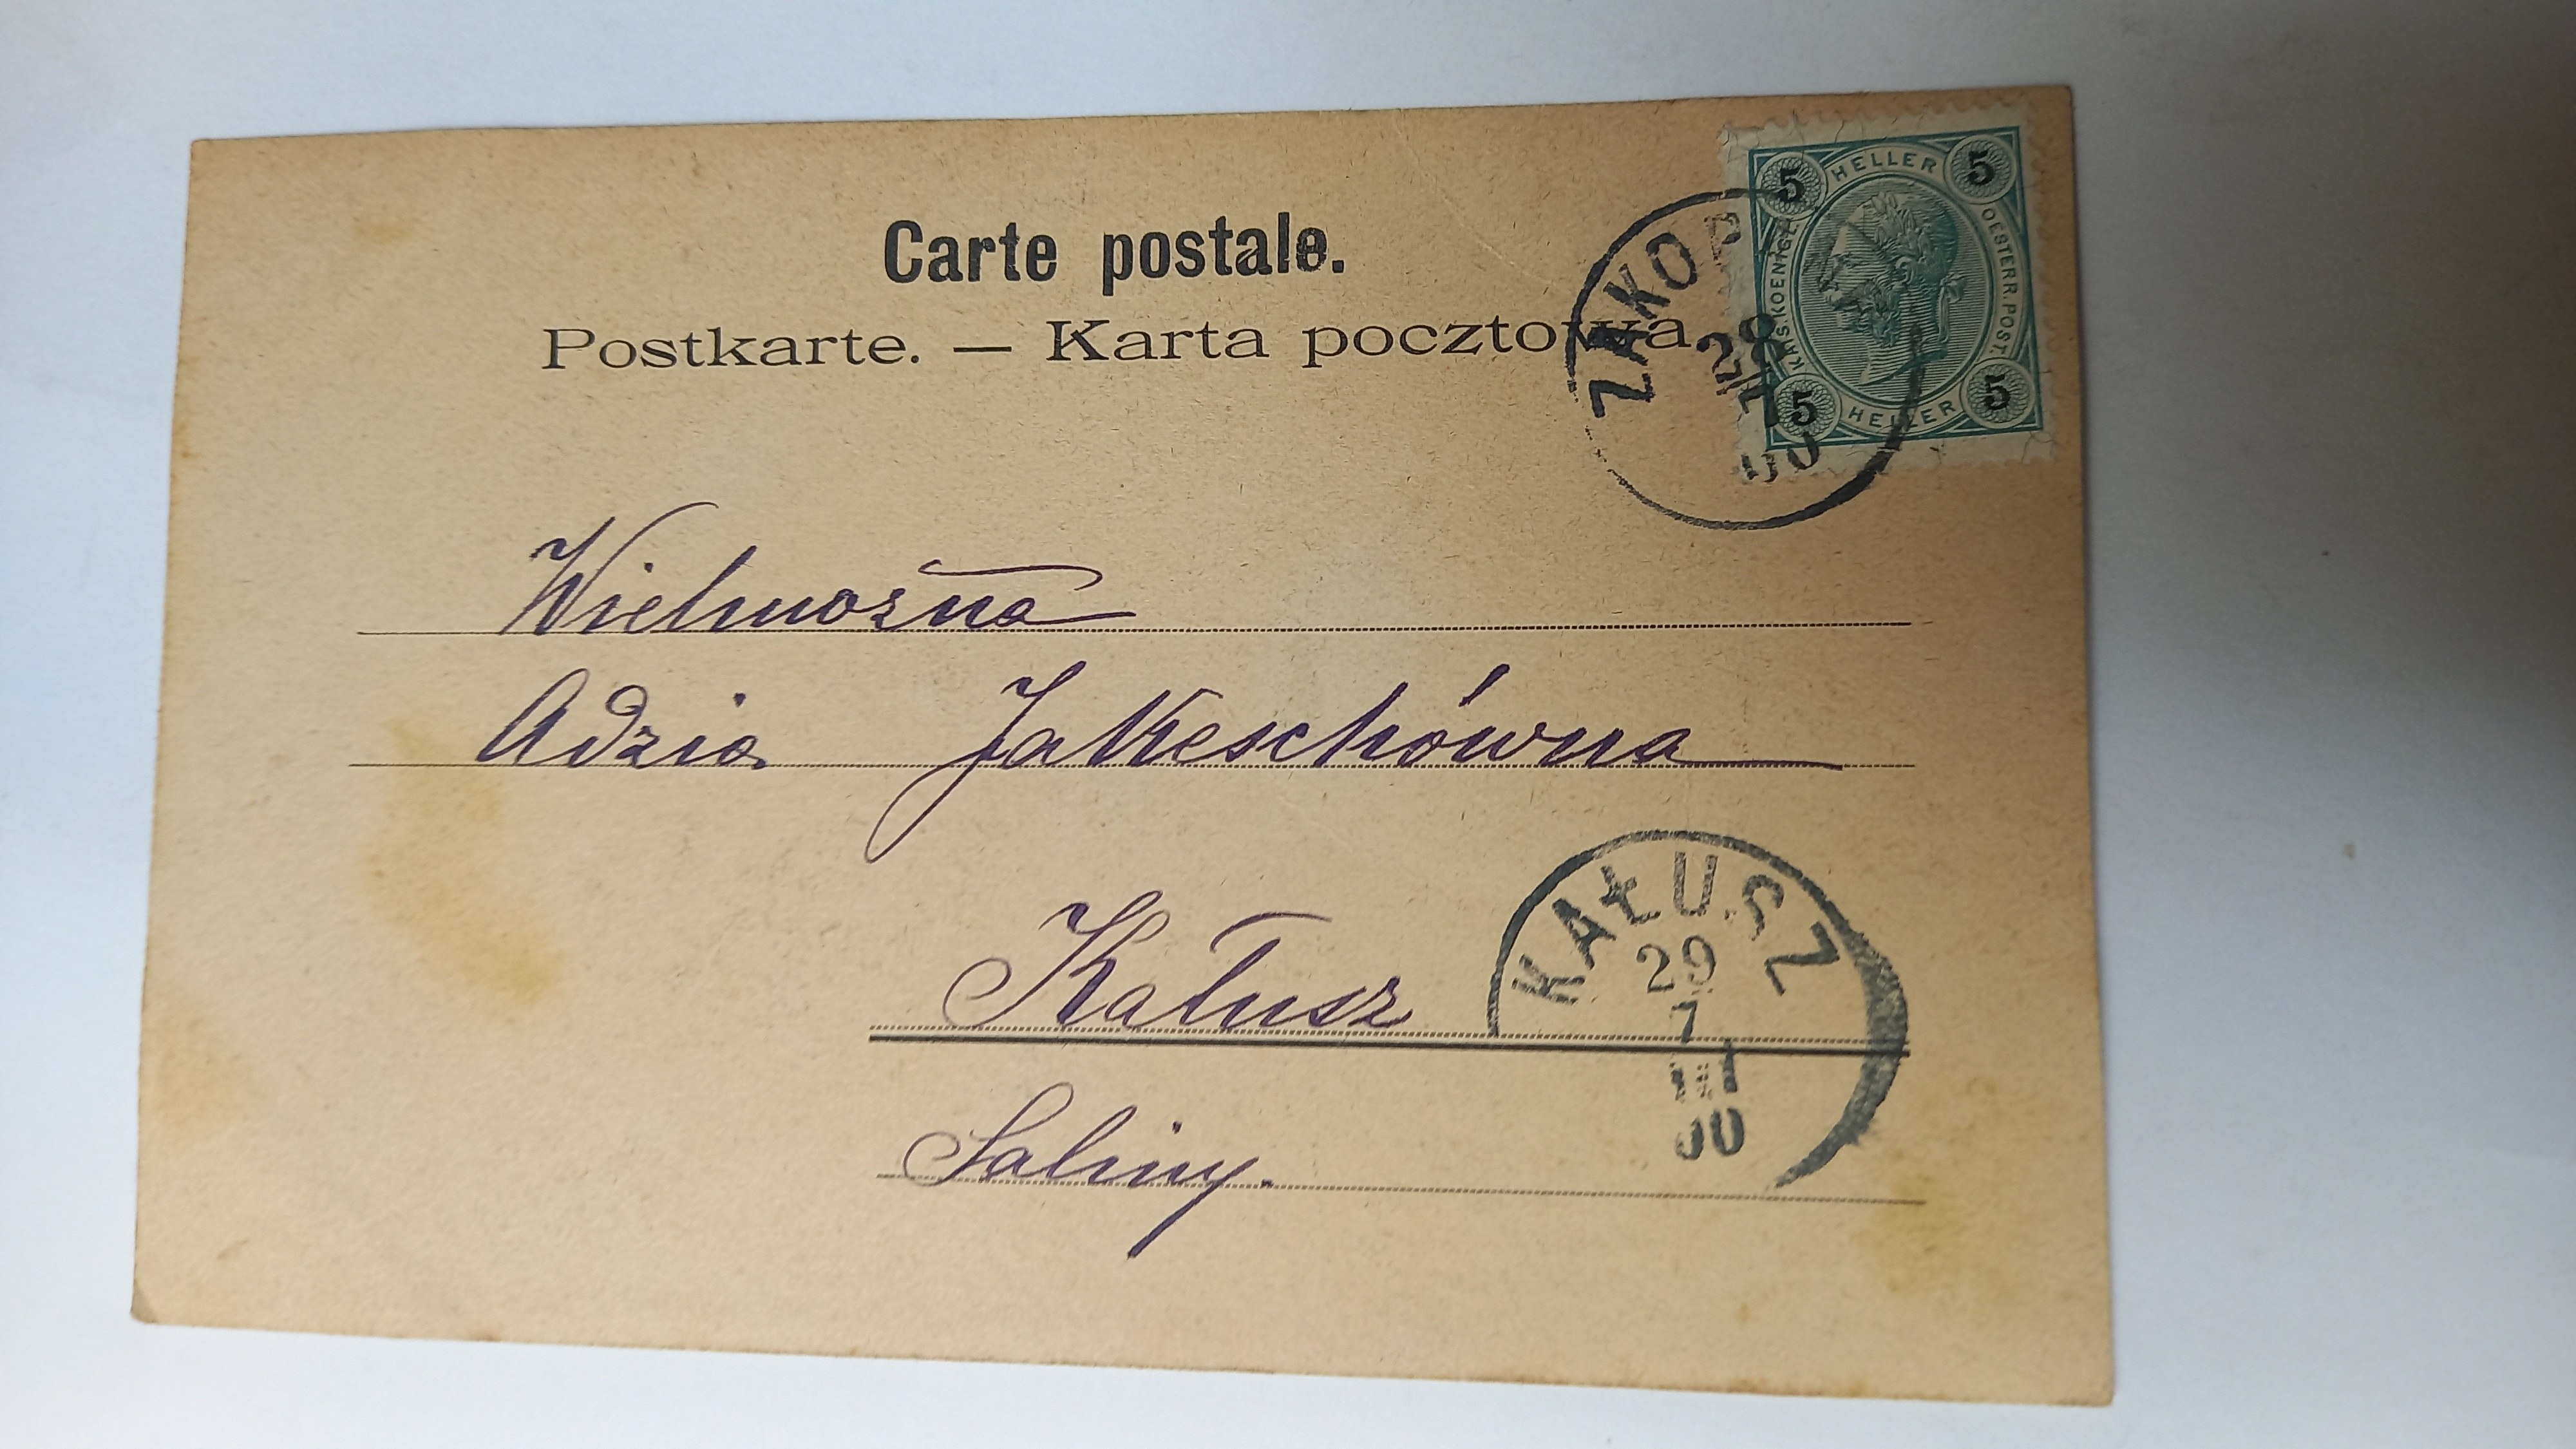 Carte postale.
Postkarte. — Karta pocztowa.
HELLER
5 5
KAIS. KOENIGL.
OESTERR. POST.
5 5
HELLER
ZAKOP
28
7
00
Wielmożna
Adzia Jakeschówna
Kałusz
Saliny.
KAŁUSZ
29
7
00